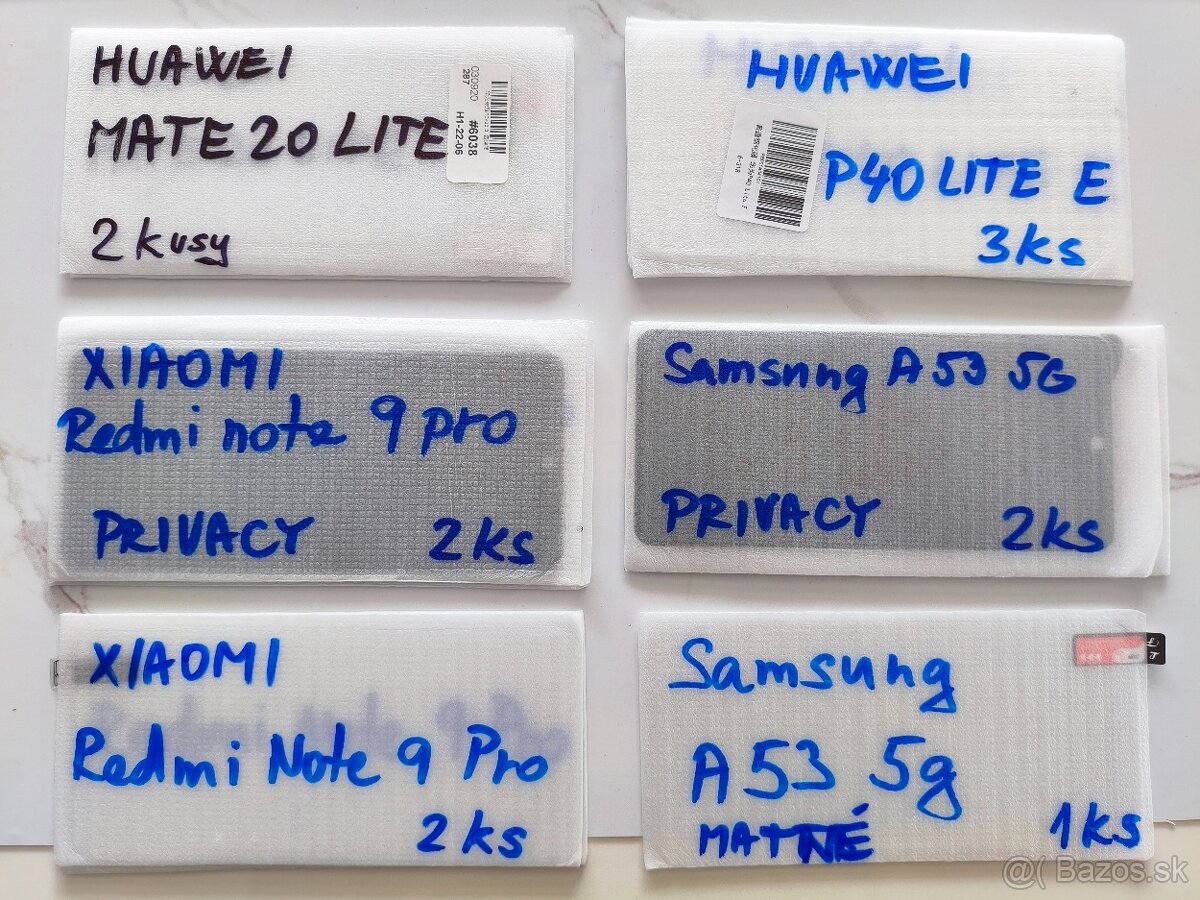 HUAWEI
MATE 20 LITE
2 kusy
030920
287
#6038
H1-22-06
HUAWEI
P40 LITE E
3ks
6-318
XIAOMI
Redmi note 9 pro
PRIVACY 2ks
Samsung A53 5G
PRIVACY 2ks
XIAOMI
Redmi Note 9 Pro
2ks
Samsung
A53 5g
MATNÉ 1ks
@( Bazos.sk